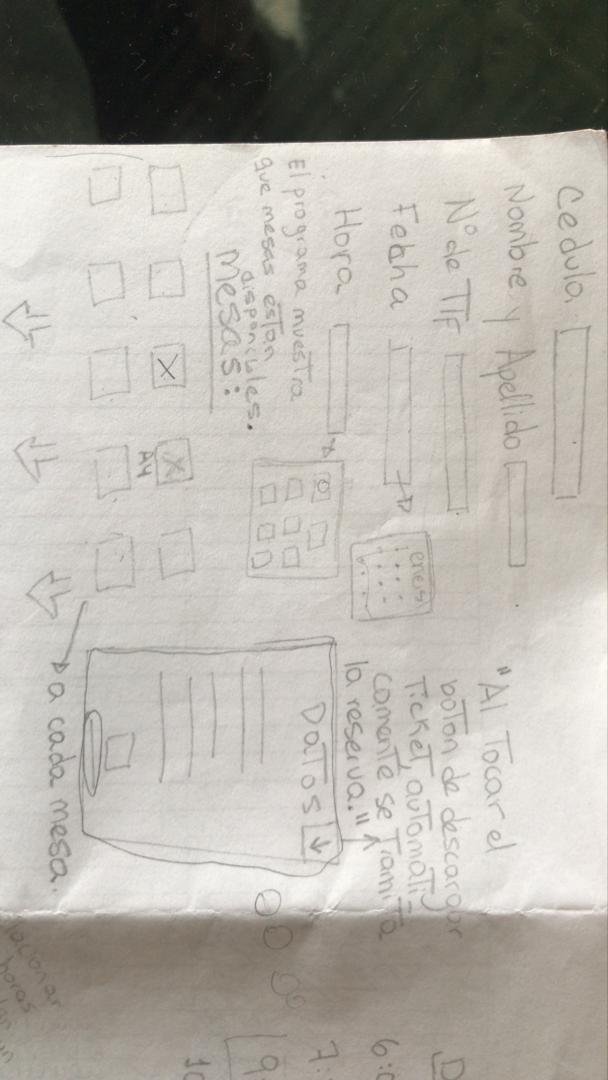 Cedula
Nombre y Apellido
N° de TIF
Fecha
Hora
El programa muestra
que mesas están
disponibles.
Mesas:
A4
"Al Tocar el
botón de descargar
Ticket, automáti
camente se Tramita
la reserva."
DaTos
a cada mesa.
horas